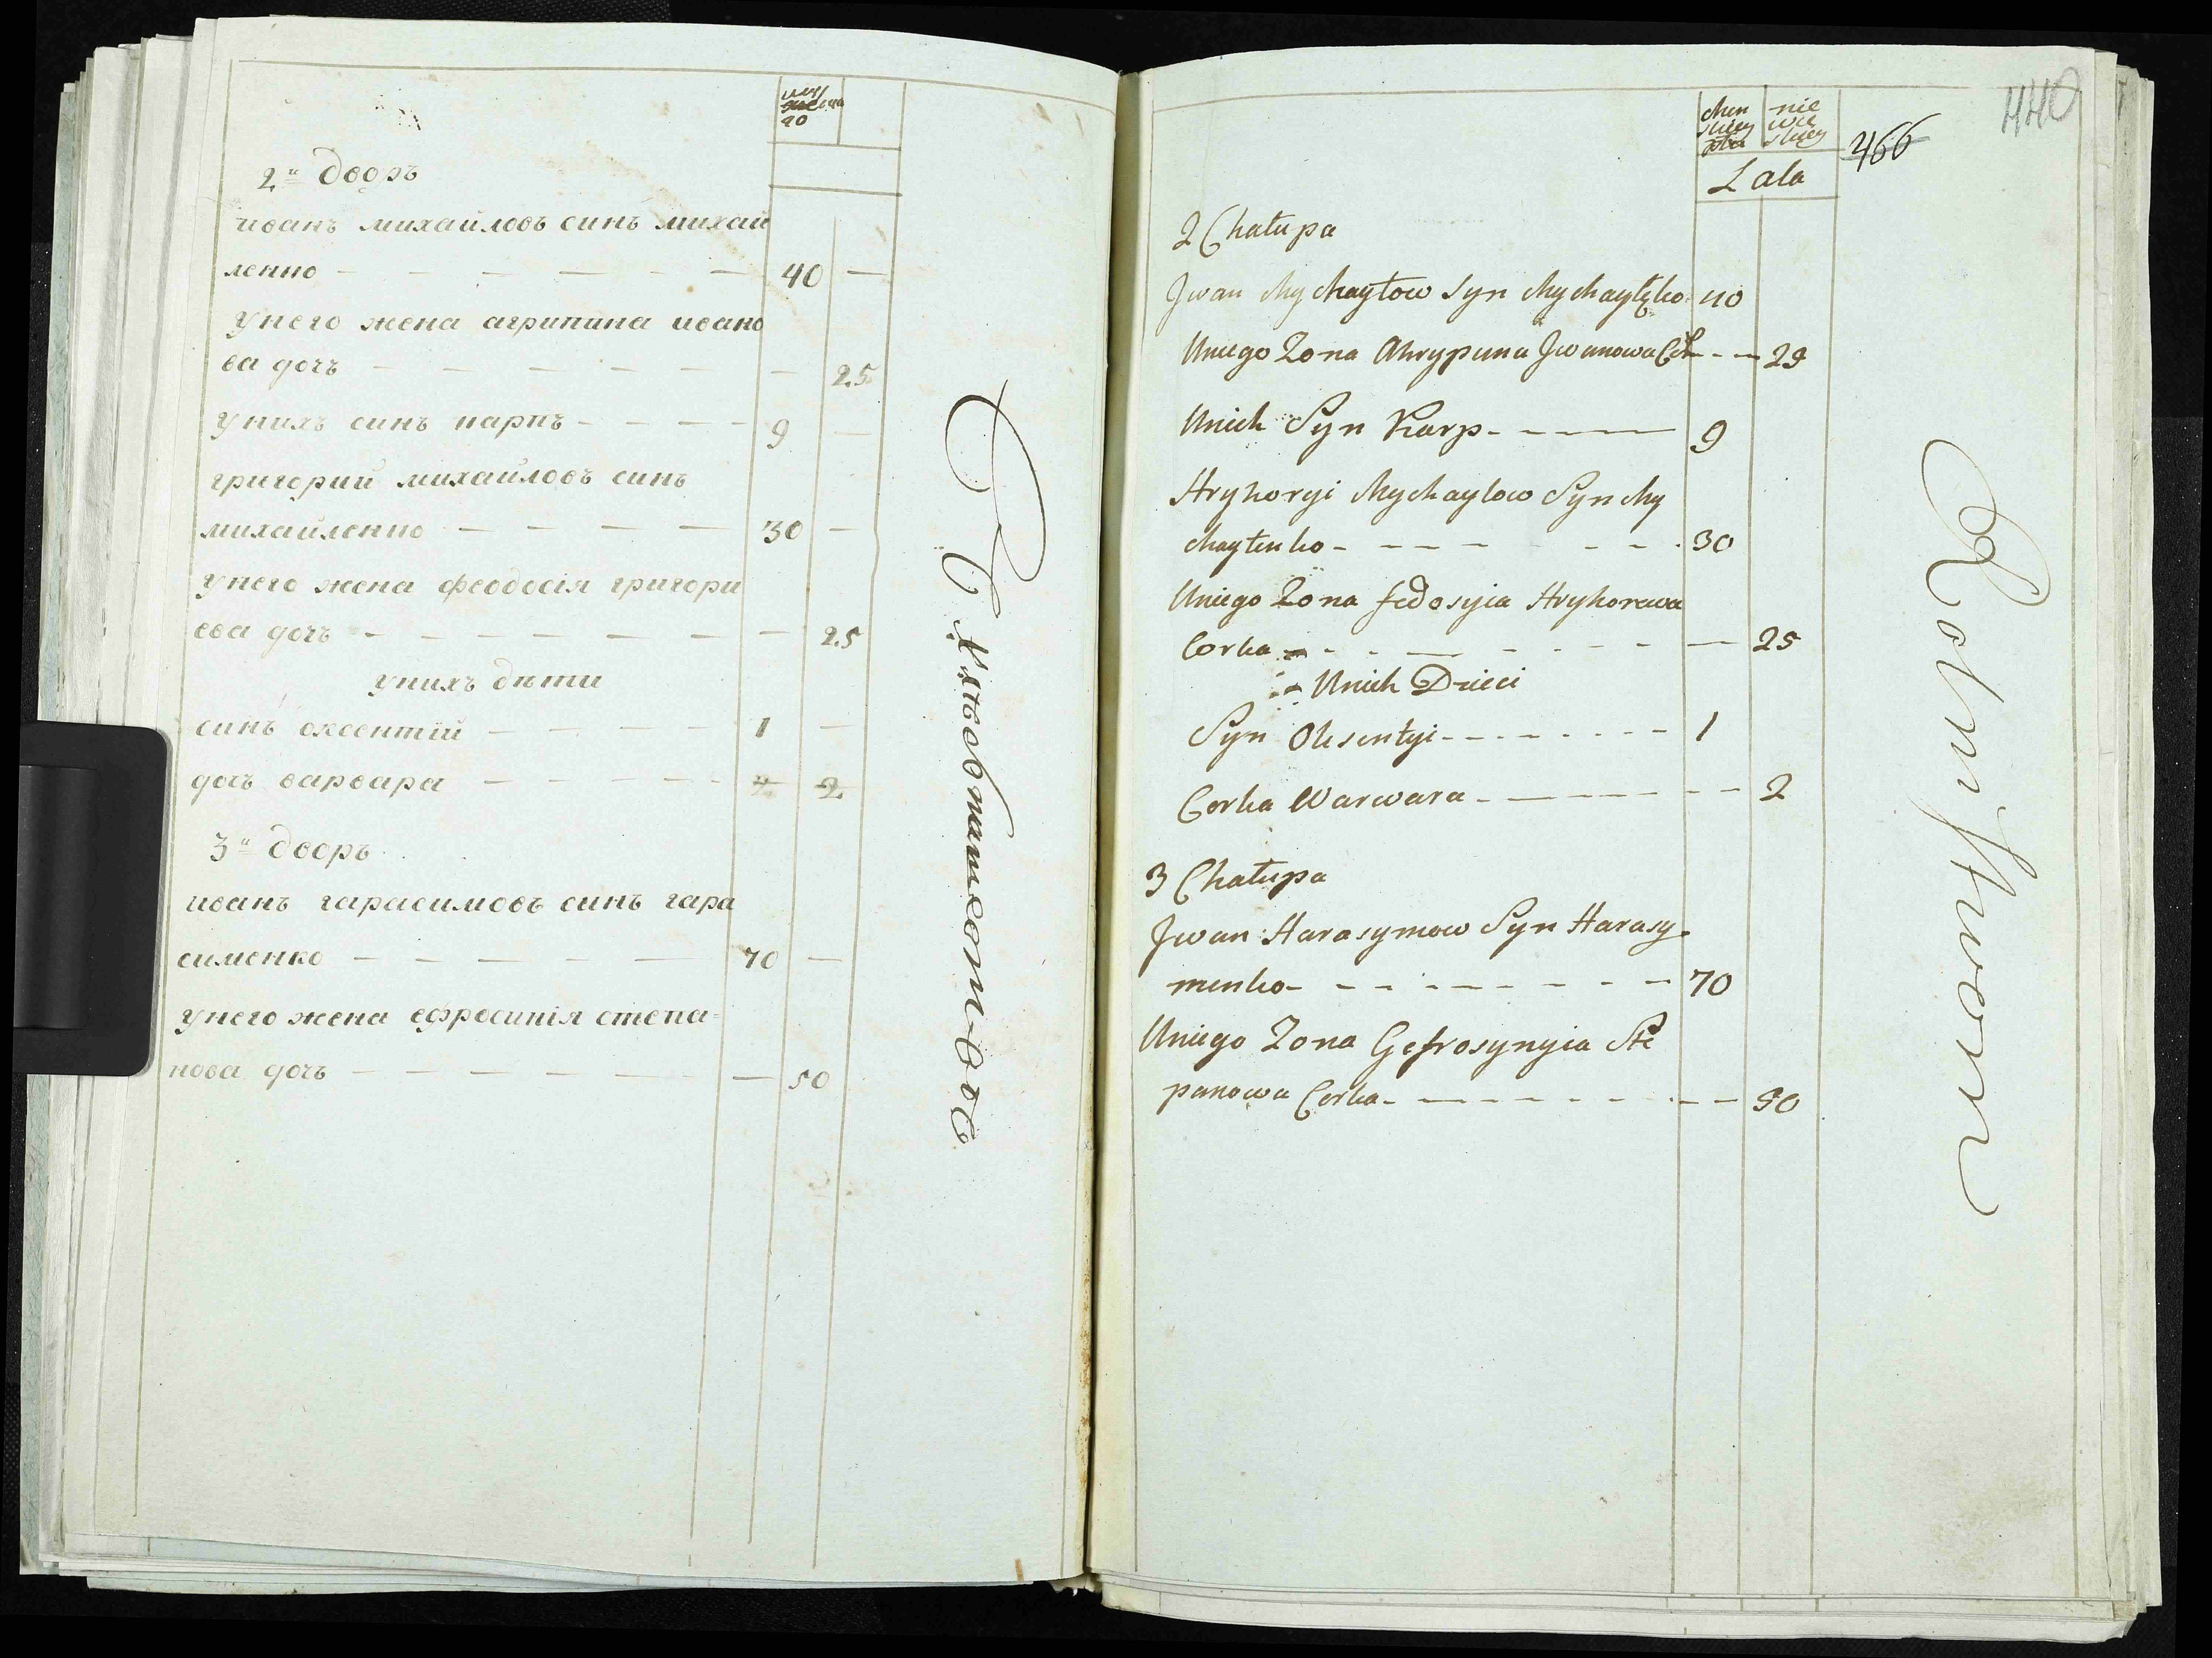 2й дворъ
иванъ михайловъ синъ михай
ленко — — — — — — 40 —
унего жена агрипина ивано
ва дочъ — — — — — — 25
унихъ синъ карпъ - - - - 9 —
григорий михайловъ синъ
михайленко — — — — 30 —
унего жена феодосія григори
ева дочъ - — — — — — — 25
унихъ дѣти
синъ оксентій — — — — 1 —
дочъ варвара — — — — - 2 2
3й дворъ
иванъ гарасимовъ синъ гара
сименко — — — — — 70 —
унего жена ефросинія степа=
нова дочъ — — — — — — — 50
440
466
Lata
2 Chałupa
Jwan Mychayłow Syn Mychayłęko 40
Uniego Zona Ahrypina Jwanowa - - — 25
Unich Syn Karp - - — — 9
Hryhoryi Mychaylow Syn My
chayłenko - - — — - - - 30
Uniego Zona fedosyia Hryhorewa
Corka - - — - - - — 25
Unich Dzieci
Syn Oksentyi - - - - - - - 1
Corka Warwara - — — - - 2
3 Chałupa
Jwan Harasymow Syn Harasy
menko - - - - — - - - 70
Uniego Zona Gefrosynyia Ste
panowa Corka - — — - - - - — 50